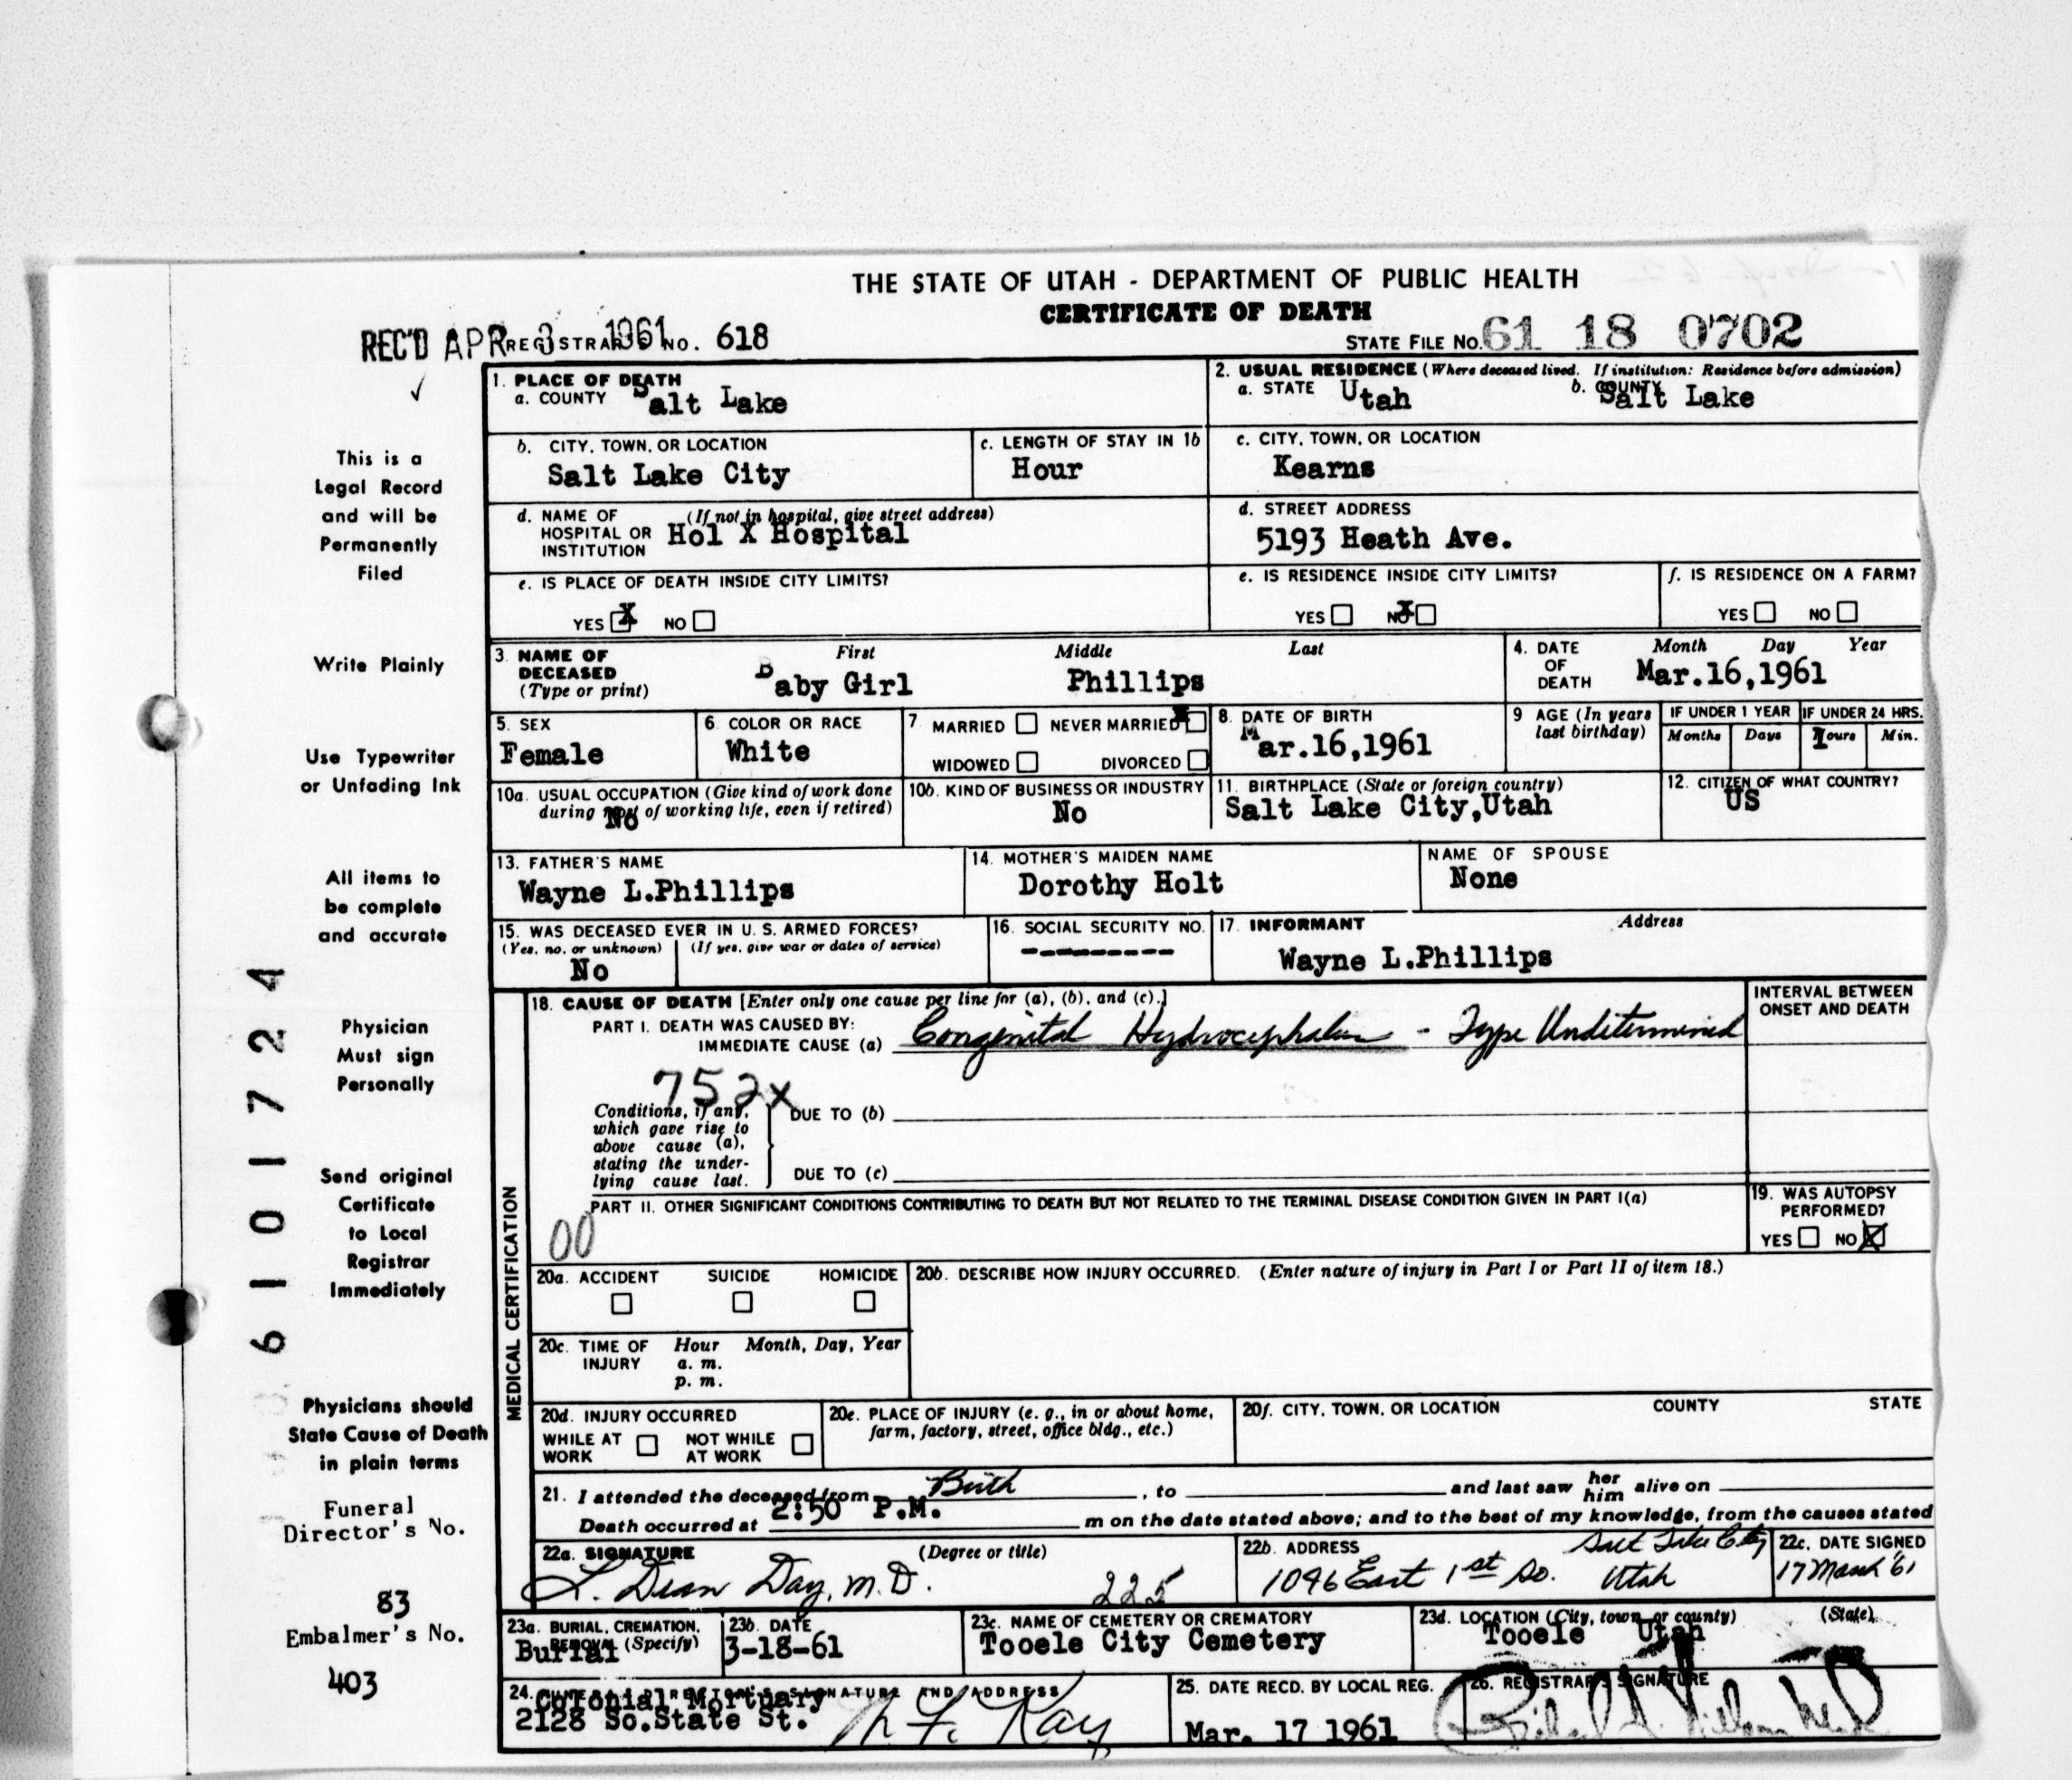 THE STATE OF UTAH - DEPARTMENT OF PUBLIC HEALTH
CERTIFICATE OF DEATH
REC'D APR 3 1961 REGISTRAR'S NO. 618
STATE FILE NO. 61 18 0702
1. PLACE OF DEATH
a. COUNTY Salt Lake
2. USUAL RESIDENCE (Where deceased lived. If institution: Residence before admission)
a. STATE Utah b. COUNTY Salt Lake
b. CITY, TOWN, OR LOCATION
Salt Lake City
c. LENGTH OF STAY IN 1b
Hour
c. CITY, TOWN, OR LOCATION
Kearns
d. NAME OF HOSPITAL OR INSTITUTION (If not in hospital, give street address)
Hol X Hospital
d. STREET ADDRESS
5193 Heath Ave.
e. IS PLACE OF DEATH INSIDE CITY LIMITS?
YES X NO
e. IS RESIDENCE INSIDE CITY LIMITS?
YES NO X
f. IS RESIDENCE ON A FARM?
YES NO
3. NAME OF DECEASED (Type or print)
First Middle Last
Baby Girl Phillips
4. DATE OF DEATH Month Day Year
Mar.16,1961
5. SEX
Female
6. COLOR OR RACE
White
7 MARRIED NEVER MARRIED X
WIDOWED DIVORCED
8. DATE OF BIRTH
Mar.16,1961
9 AGE (In years last birthday)
IF UNDER 1 YEAR
Months Days
IF UNDER 24 HRS.
Hours Min.
1
10a. USUAL OCCUPATION (Give kind of work done during most of working life, even if retired)
No
10b. KIND OF BUSINESS OR INDUSTRY
No
11. BIRTHPLACE (State or foreign country)
Salt Lake City,Utah
12. CITIZEN OF WHAT COUNTRY?
US
13. FATHER'S NAME
Wayne L.Phillips
14. MOTHER'S MAIDEN NAME
Dorothy Holt
NAME OF SPOUSE
None
15. WAS DECEASED EVER IN U. S. ARMED FORCES?
(Yes, no, or unknown) (If yes, give war or dates of service)
No
16. SOCIAL SECURITY NO.
---------
17. INFORMANT Address
Wayne L.Phillips
MEDICAL CERTIFICATION
18. CAUSE OF DEATH [Enter only one cause per line for (a), (b), and (c).]
INTERVAL BETWEEN ONSET AND DEATH
PART I. DEATH WAS CAUSED BY:
IMMEDIATE CAUSE (a) Congenital Hydrocephalus - Type Undetermined
752x
Conditions, if any, which gave rise to above cause (a), stating the underlying cause last.
DUE TO (b)
DUE TO (c)
PART II. OTHER SIGNIFICANT CONDITIONS CONTRIBUTING TO DEATH BUT NOT RELATED TO THE TERMINAL DISEASE CONDITION GIVEN IN PART I(a)
00
19. WAS AUTOPSY PERFORMED?
YES NO X
20a. ACCIDENT SUICIDE HOMICIDE
20b. DESCRIBE HOW INJURY OCCURRED. (Enter nature of injury in Part I or Part II of item 18.)
20c. TIME OF INJURY Hour Month, Day, Year
a. m.
p. m.
20d. INJURY OCCURRED
WHILE AT WORK NOT WHILE AT WORK
20e. PLACE OF INJURY (e. g., in or about home, farm, factory, street, office bldg., etc.)
20f. CITY, TOWN, OR LOCATION COUNTY STATE
21. I attended the deceased from Birth, to and last saw her him alive on
Death occurred at 2:50 P.M. m on the date stated above; and to the best of my knowledge, from the causes stated
22a. SIGNATURE (Degree or title)
L. Dean Day, M.D. 225
22b. ADDRESS
1046 East 1st So. Salt Lake City Utah
22c. DATE SIGNED
17 March '61
23a. BURIAL, CREMATION, REMOVAL (Specify)
Burial
23b. DATE
3-18-61
23c. NAME OF CEMETERY OR CREMATORY
Tooele City Cemetery
23d. LOCATION (City, town, or county) (State)
Tooele Utah
24. FUNERAL DIRECTOR'S SIGNATURE AND ADDRESS
Colonial Mortuary
2128 So.State St.
25. DATE RECD. BY LOCAL REG.
Mar. 17 1961
26. REGISTRAR'S SIGNATURE
This is a
Legal Record
and will be
Permanently
Filed
Write Plainly
Use Typewriter
or Unfading Ink
All items to
be complete
and accurate
Physician
Must sign
Personally
Send original
Certificate
to Local
Registrar
Immediately
Physicians should
State Cause of Death
in plain terms
Funeral
Director's No.
83
Embalmer's No.
403
6101724